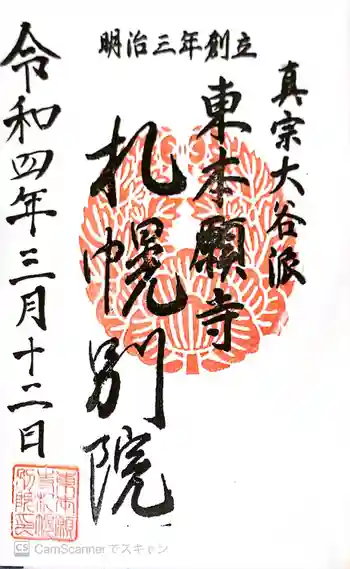 明治三年創立
真宗大谷派
東本願寺
札幌別院
令和四年三月十二日
東本願
寺札幌
別院印
CS CamScannerでスキャン